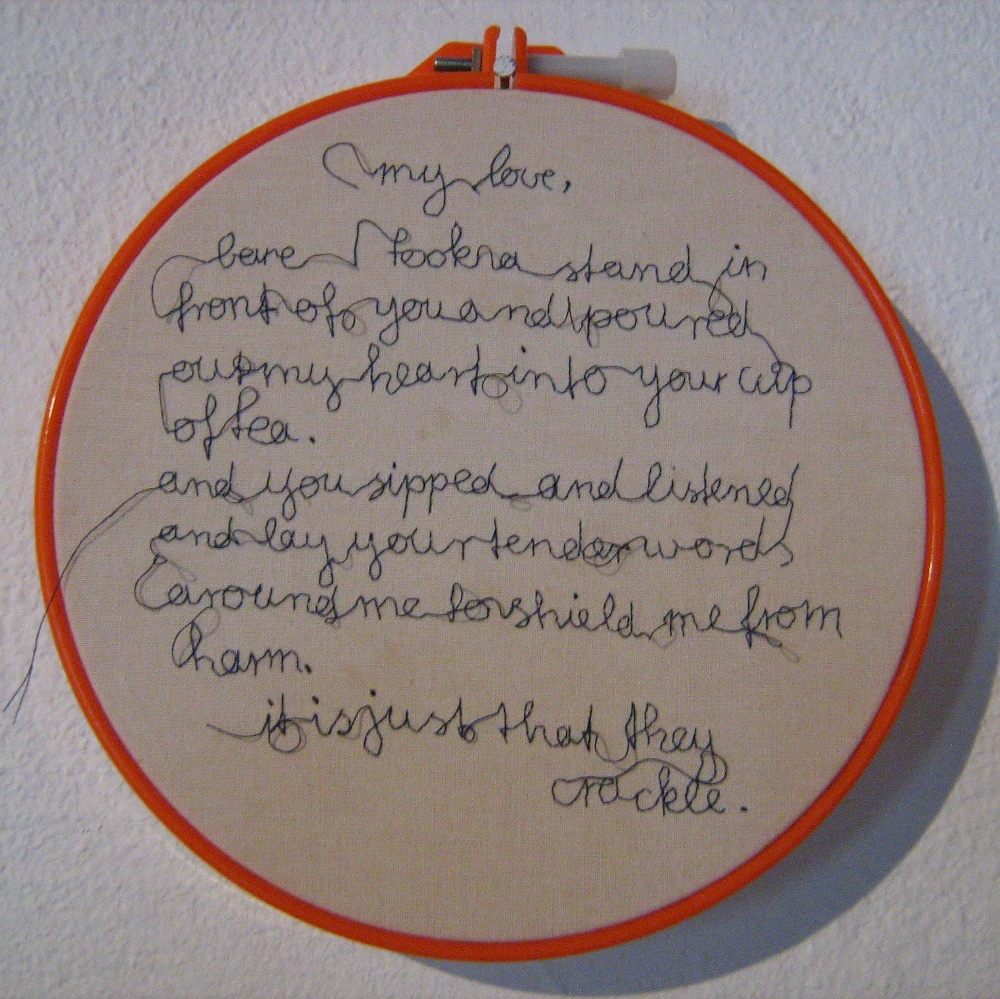 my love,
bare I took a stand in
front of you and poured
out my heart into your cup
of tea.
and you sipped and listened
and lay your tender words
around me to shield me from
harm.
it is just that they
crackle.